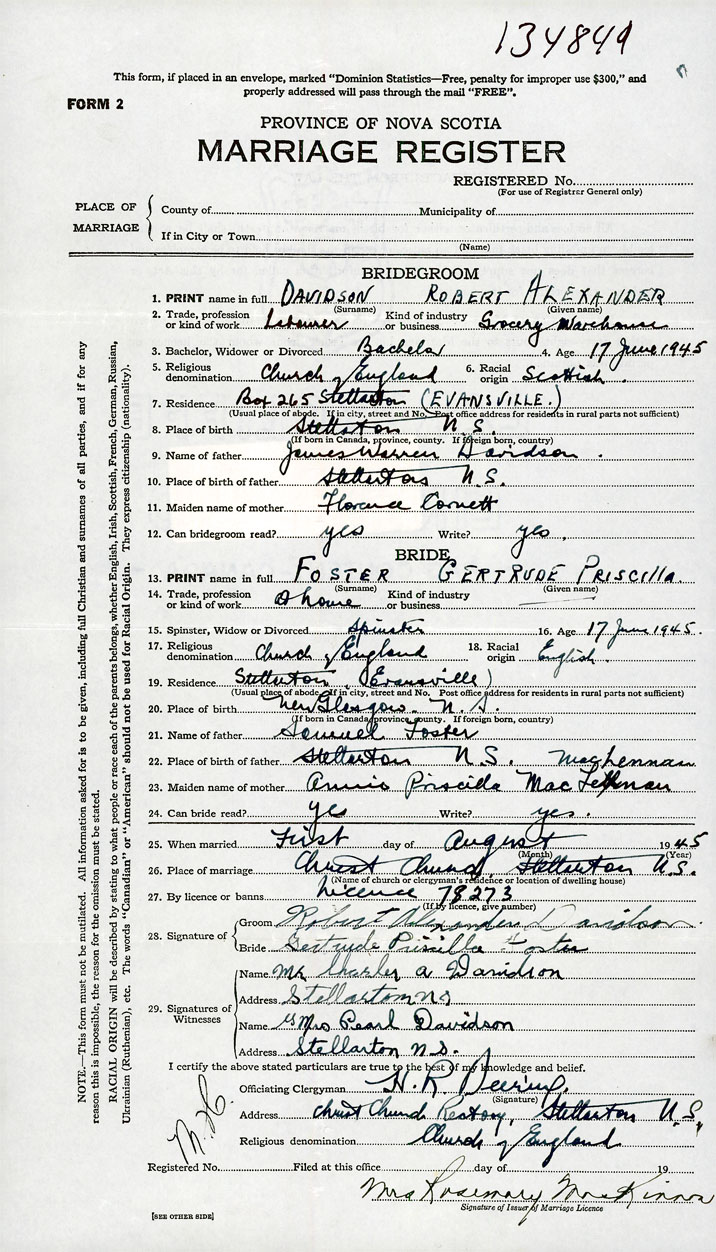 134849
This form, if placed in an envelope, marked "Dominion Statistics—Free, penalty for improper use $300," and
properly addressed will pass through the mail "FREE".
FORM 2
PROVINCE OF NOVA SCOTIA
MARRIAGE REGISTER
REGISTERED No.
(For use of Registrar General only)
PLACE OF MARRIAGE
County of Municipality of
If in City or Town
(Name)
BRIDEGROOM
1. PRINT name in full DAVIDSON ROBERT ALEXANDER
(Surname) (Given name)
2. Trade, profession or kind of work Labourer Kind of industry or business Grocery Warehouse
3. Bachelor, Widower or Divorced Bachelor 4. Age 17 June 1945
5. Religious denomination Church of England 6. Racial origin Scottish.
7. Residence Box 265 Stellarton (EVANSVILLE.)
(Usual place of abode. If in city, street and No. Post office address for residents in rural parts not sufficient)
8. Place of birth Stellarton N.S.
(If born in Canada, province, county. If foreign born, country)
9. Name of father James Warren Davidson.
10. Place of birth of father Stellarton N.S.
11. Maiden name of mother Florence Cornett
12. Can bridegroom read? yes Write? yes.
BRIDE
13. PRINT name in full FOSTER GERTRUDE PRISCILLA.
(Surname) (Given name)
14. Trade, profession or kind of work At home Kind of industry or business
15. Spinster, Widow or Divorced Spinster 16. Age 17 June 1945.
17. Religious denomination Church of England 18. Racial origin English.
19. Residence Stellarton (Evansville)
(Usual place of abode. If in city, street and No. Post office address for residents in rural parts not sufficient)
20. Place of birth New Glasgow. N.S.
(If born in Canada, province, county. If foreign born, country)
21. Name of father Samuel Foster
22. Place of birth of father Stellarton N.S. MacLennan
23. Maiden name of mother Annie Priscilla MacLennan
24. Can bride read? yes Write? yes.
25. When married First day of August 1945
(Month) (Year)
26. Place of marriage Christ Church, Stellarton N.S.
(Name of church or clergyman's residence or location of dwelling house)
27. By licence or banns Licence 78273
(If by licence, give number)
28. Signature of Groom Robert Alexander Davidson.
Bride Gertrude Priscilla Foster
29. Signatures of Witnesses
Name Mr Charles A Davidson
Address Stellarton NS
Name Mrs Pearl Davidson
Address Stellarton N.S.
I certify the above stated particulars are true to the best of my knowledge and belief.
Officiating Clergyman
(Signature)
Address Christ Church Rectory, Stellarton N.S.
Religious denomination Church of England
Registered No. Filed at this office day of 19
Mrs Rosemary MacKinnon
Signature of Issuer of Marriage Licence
[SEE OTHER SIDE]
NOTE.—This form must not be mutilated. All information asked for is to be given, including full Christian and surnames of all parties, and if for any
reason this is impossible, the reason for the omission must be stated.
RACIAL ORIGIN will be described by stating to what people or race each of the parents belongs, whether English, Irish, Scottish, French, German, Russian,
Ukrainian (Ruthenian), etc. The words "Canadian" or "American" should not be used for Racial Origin. They express citizenship (nationality).